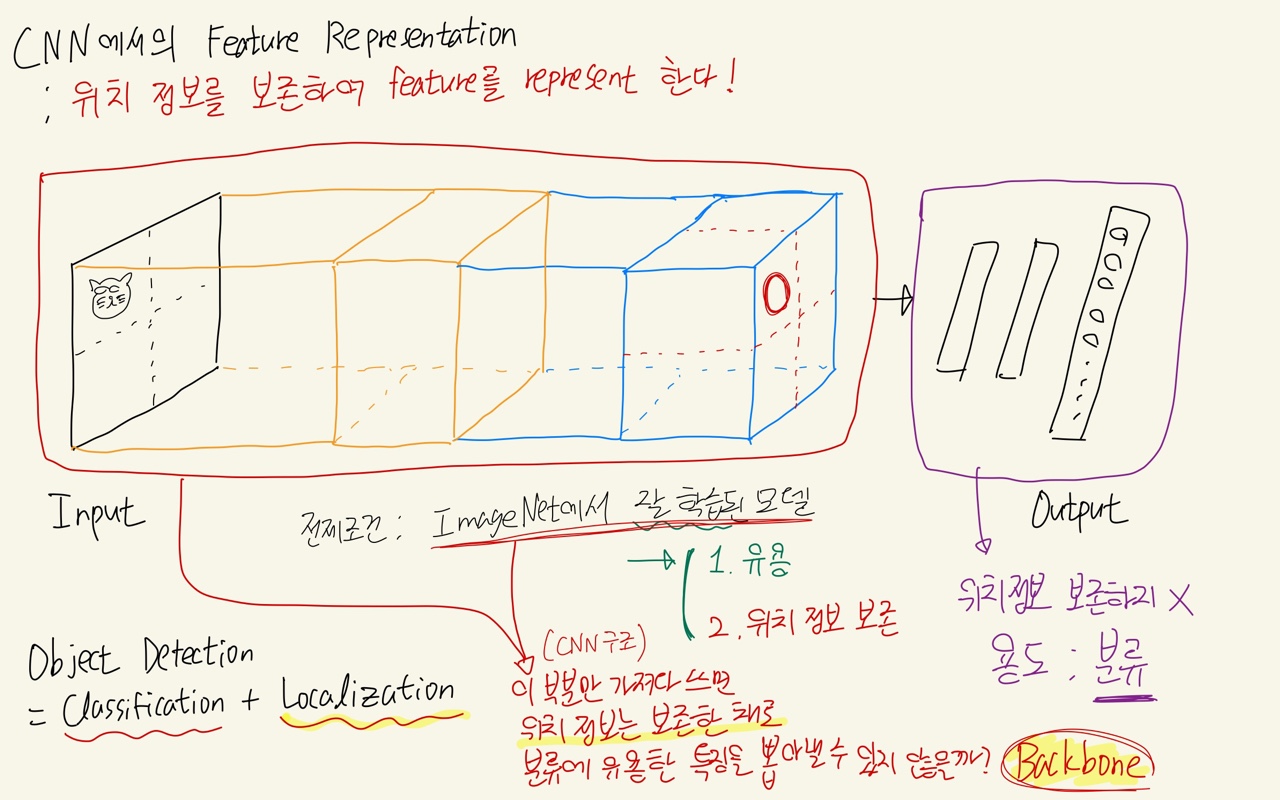 CNN에서의 Feature Representation
; 위치 정보를 보존하여 feature를 represent 한다!
Input
전제조건 : ImageNet에서 잘 학습된 모델
1. 유용
2. 위치 정보 보존
Output
위치정보 보존하지 X
용도 : 분류
Object Detection
= Classification + Localization
(CNN구조)
이 부분만 가져다 쓰면
위치 정보는 보존한 채로
분류에 유용한 특징을 뽑아낼 수 있지 않을까? Backbone